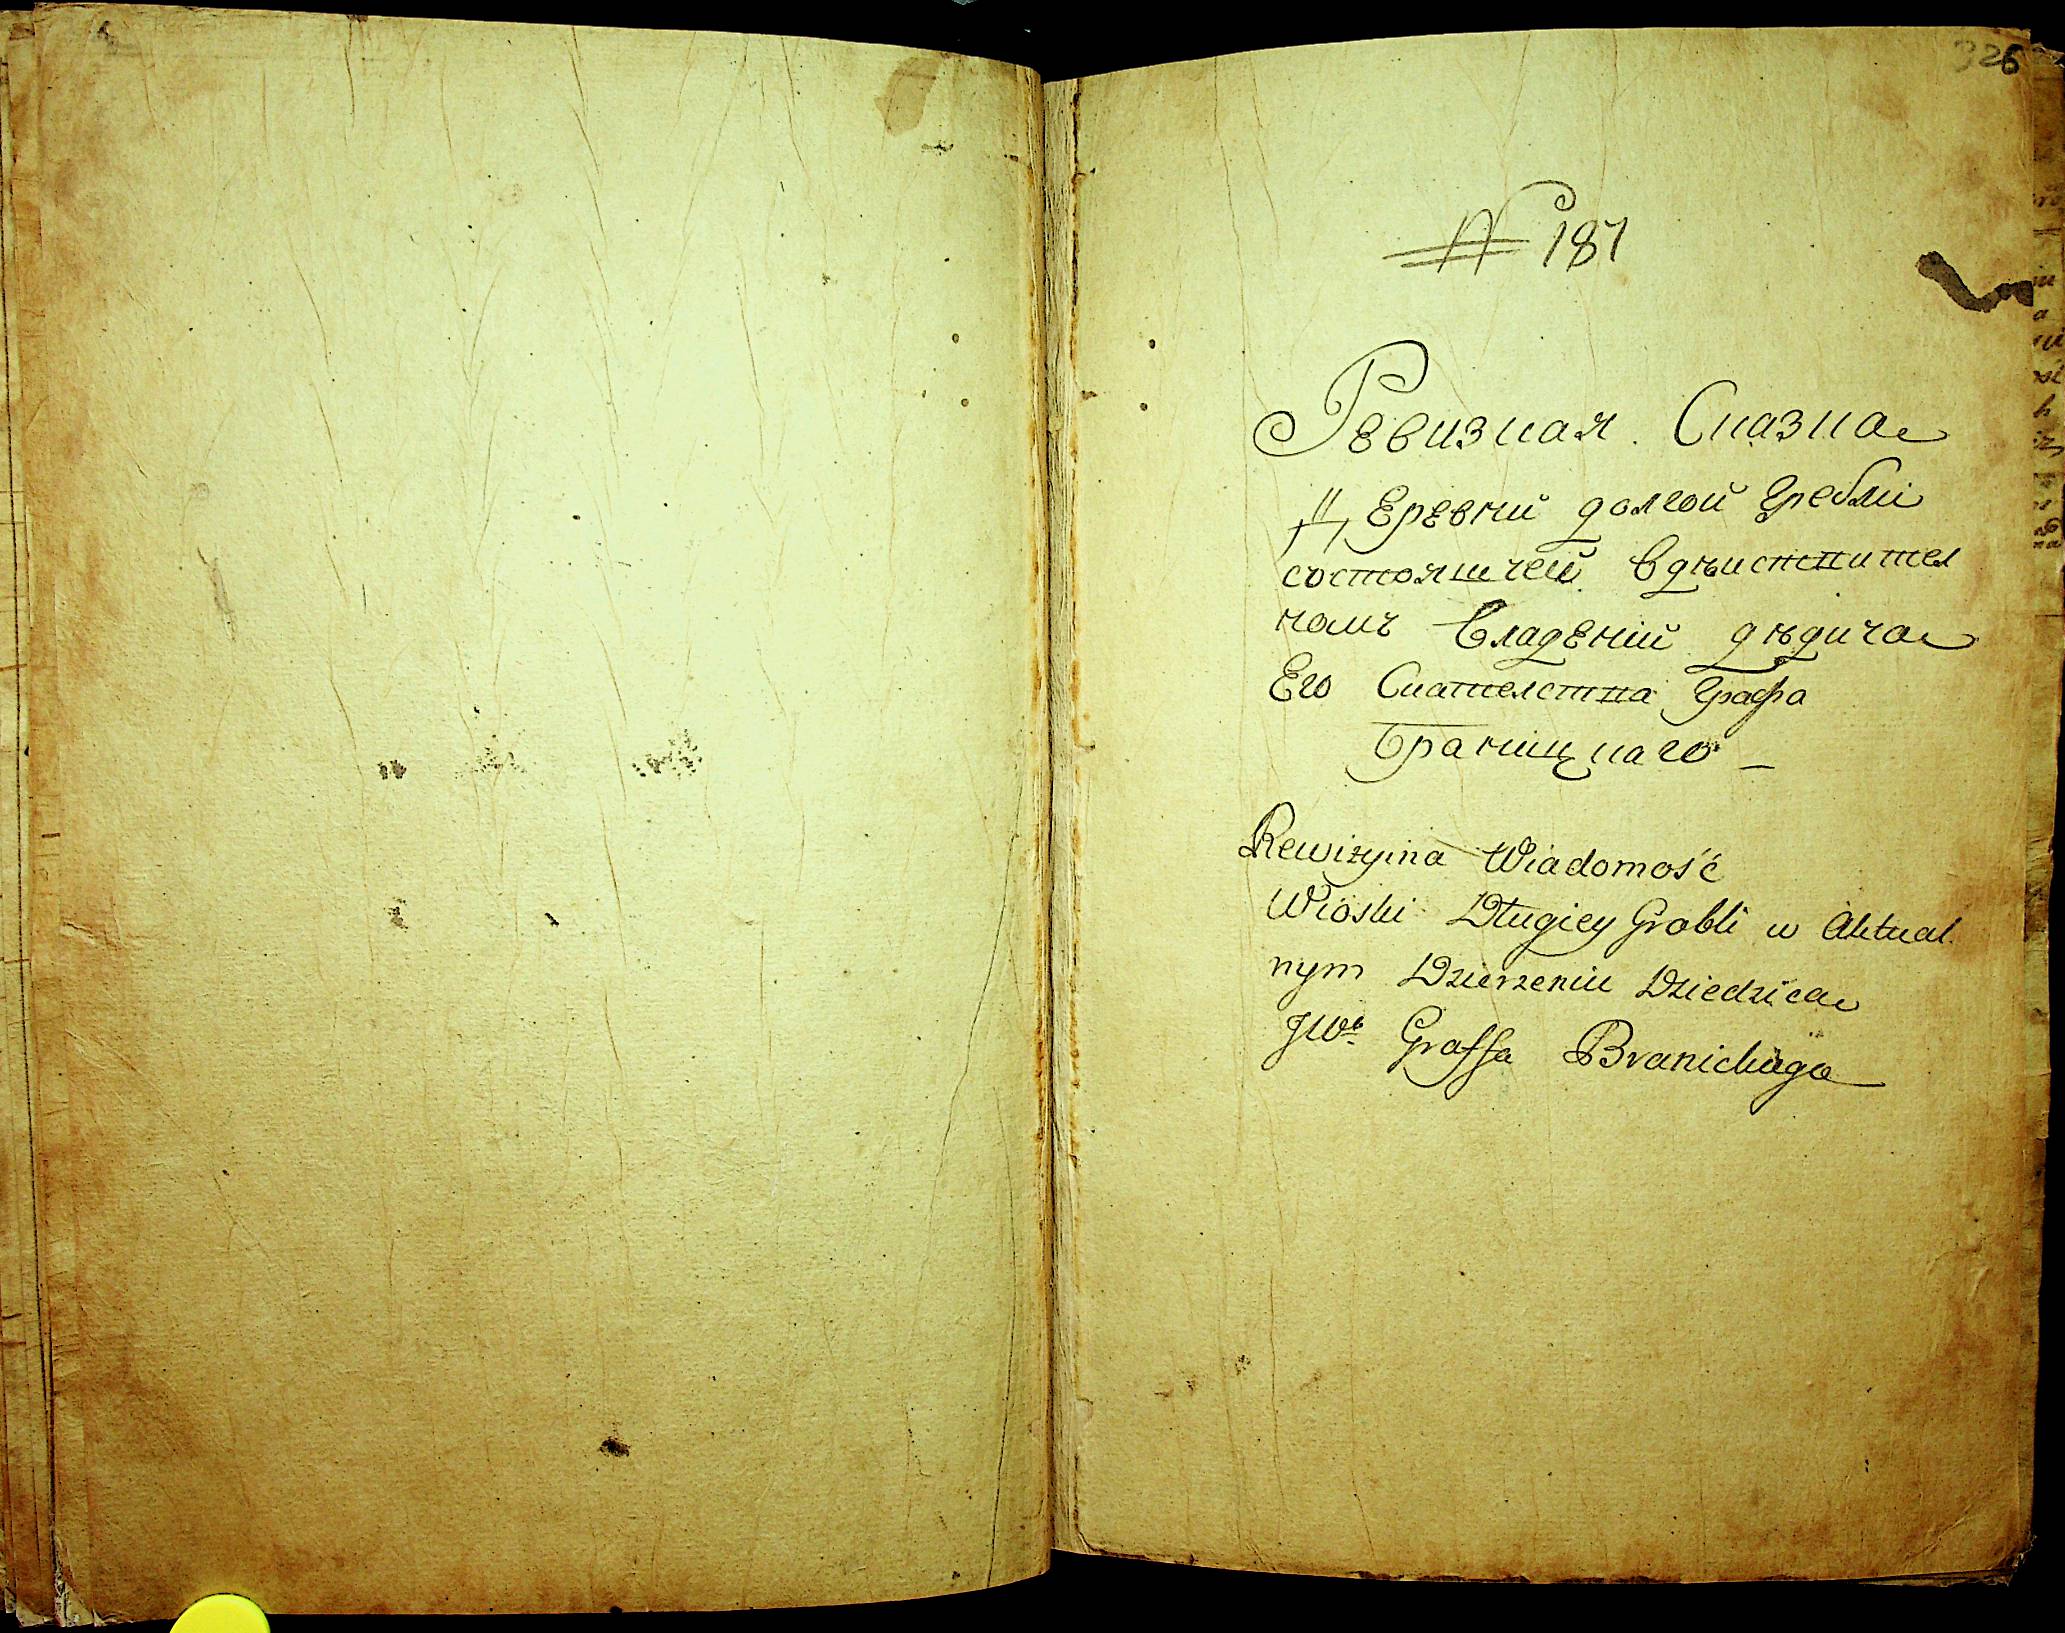 326
№ 187
Ревизкая Сказка
Деревни долгой Гребли
состояшчей вдѣиствител
номъ владении дѣдича
Его Сиателства Графа
Браницкаго
Rewizyina Wiadomość
Wioski Długiey Grobli w Aktual
nym Dzierżeniu Dziedzica
JWo Graffa Branickiego